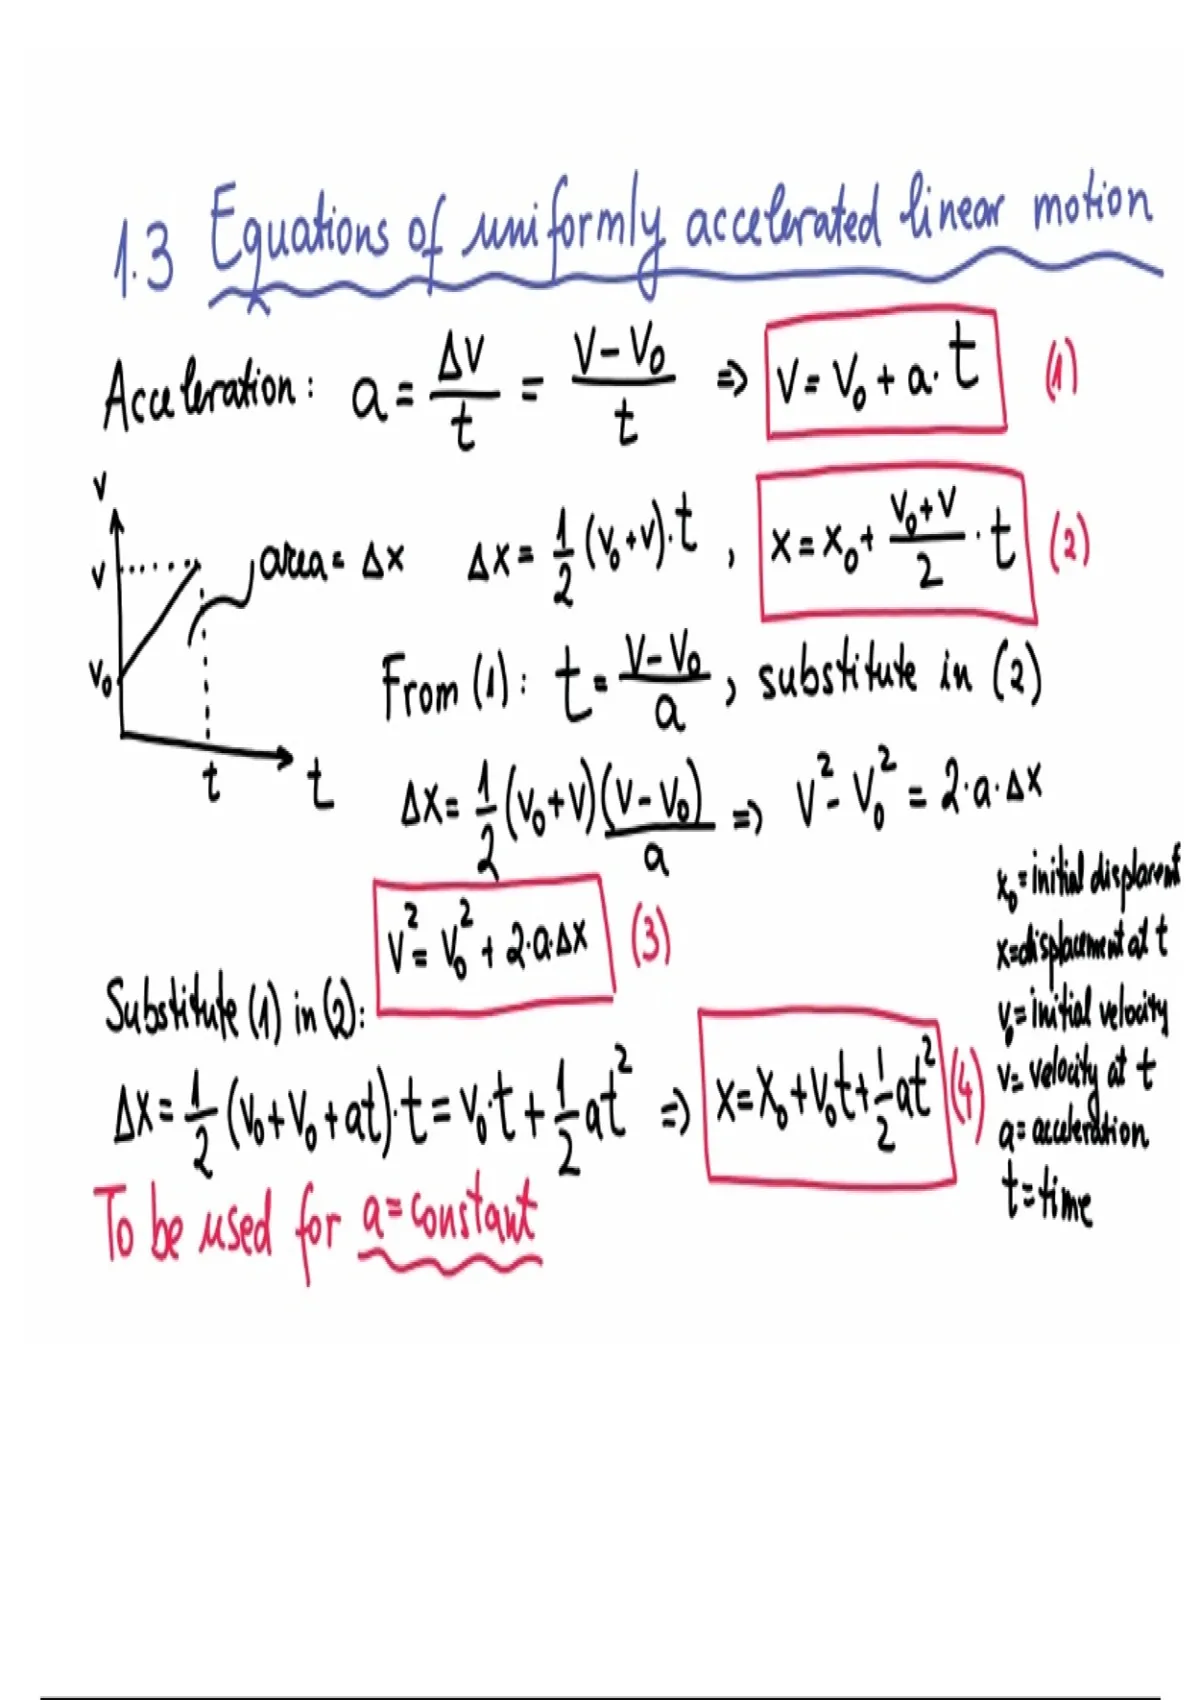 1.3 Equations of uniformly accelerated linear motion
Acceleration: a = Δv/t = (v - v₀)/t ⇒ v = v₀ + a·t (1)
v
v
v₀
t
t
area = Δx Δx = 1/2 (v₀+v)·t , x = x₀ + (v₀+v)/2 · t (2)
From (1): t = (v - v₀)/a , substitute in (2)
Δx = 1/2 (v₀+v)(v - v₀)/a ⇒ v² - v₀² = 2·a·Δx
v² = v₀² + 2·a·Δx (3)
Substitute (1) in (2):
Δx = 1/2 (v₀+v₀+at)·t = v₀·t + 1/2 at² ⇒ x = x₀ + v₀t + 1/2 at² (4)
To be used for a = constant
x₀ = initial
x = displacement at t
v₀ = initial velocity
v = velocity at t
a = acceleration
t = time